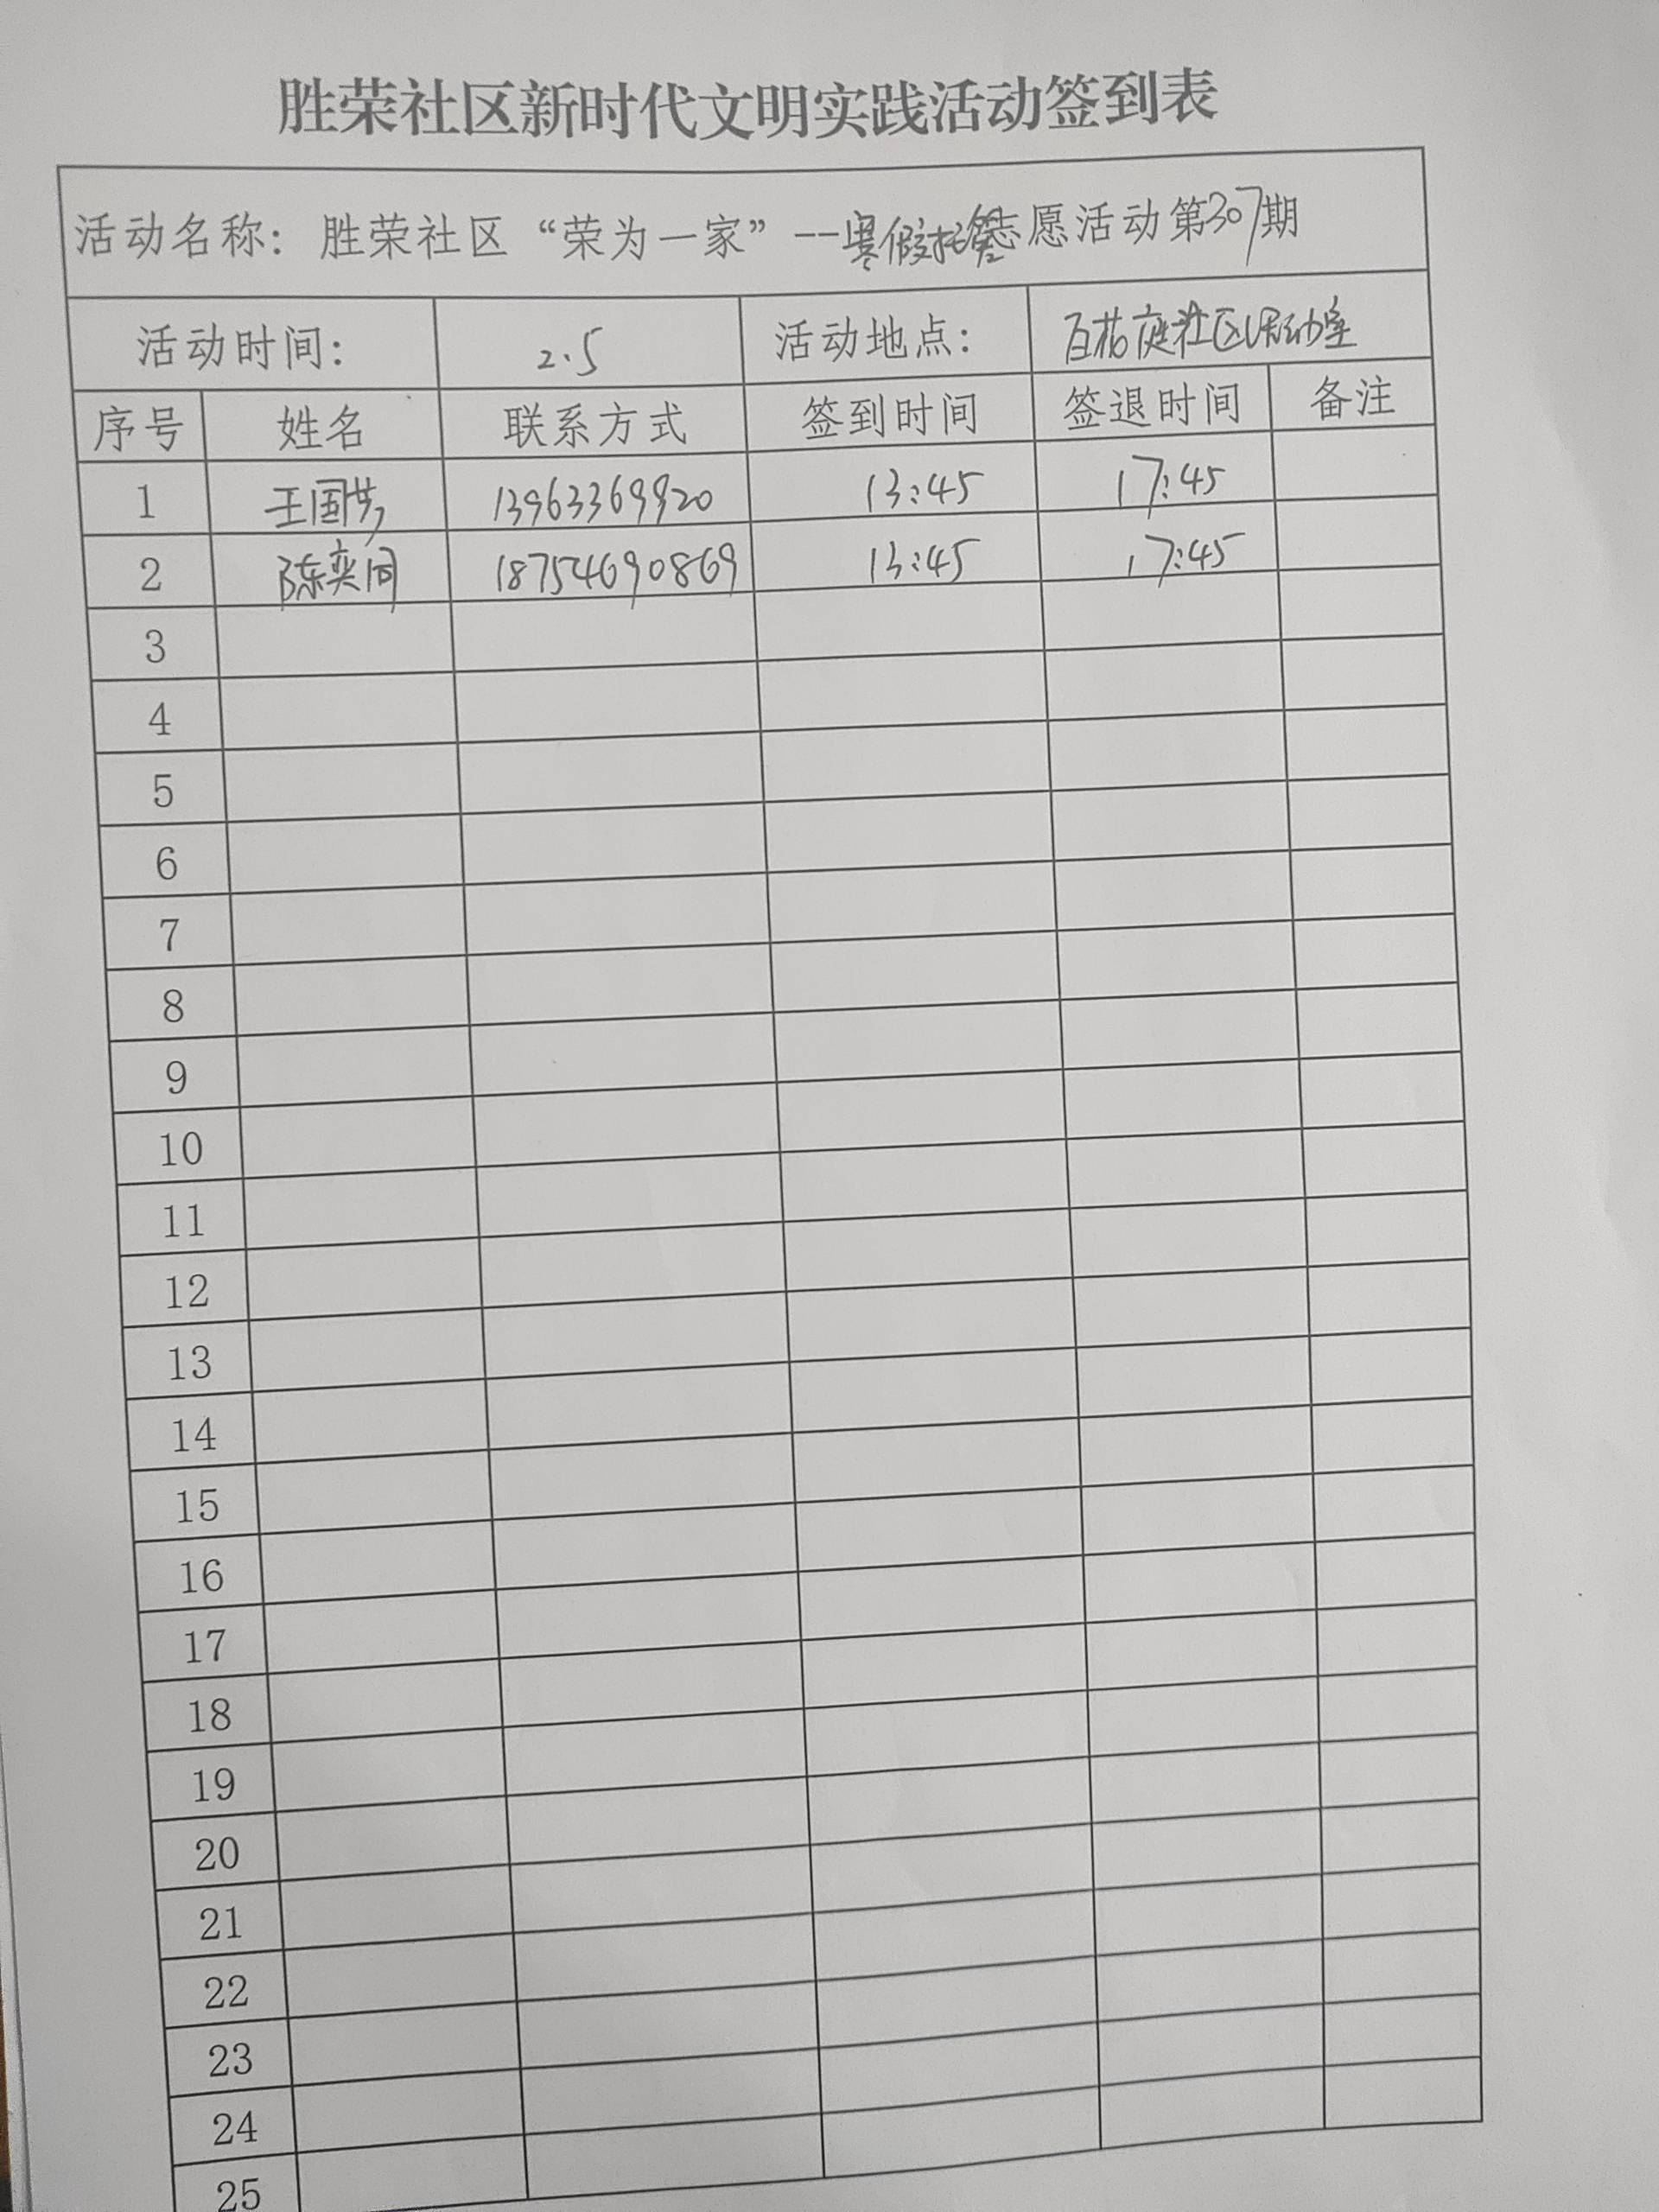 胜荣社区新时代文明实践活动签到表
活动名称：胜荣社区“荣为一家”--寒假托管志愿活动第307期
活动时间： 2.5 活动地点： 百花庭社区活动室
序号 姓名 联系方式 签到时间 签退时间 备注
1 王国芳 13963369920 13:45 17:45
2 陈奕同 18754690869 13:45 17:45
3
4
5
6
7
8
9
10
11
12
13
14
15
16
17
18
19
20
21
22
23
24
25